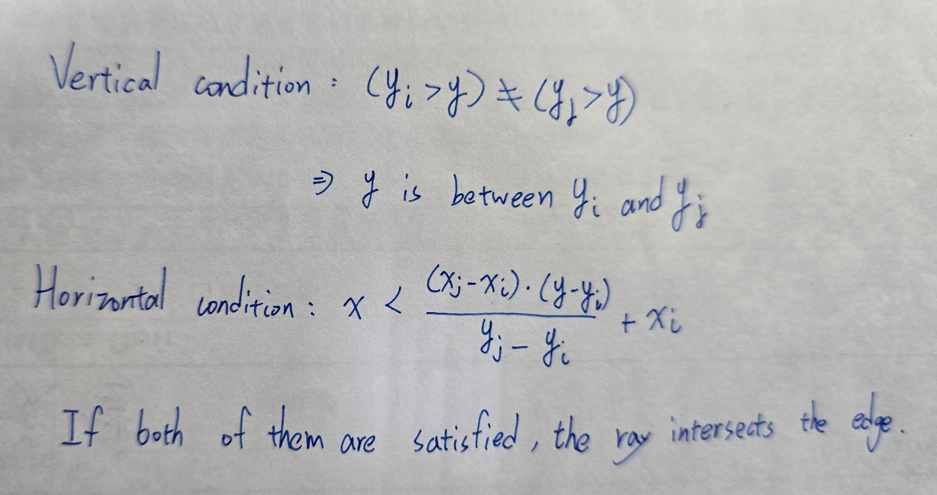 Vertical condition : (y_i > y) ≠ (y_j > y)
⇒ y is between y_i and y_j
Horizontal condition : x < \frac{(x_j - x_i) · (y - y_i)}{y_j - y_i} + x_i
If both of them are satisfied, the ray intersects the edge.